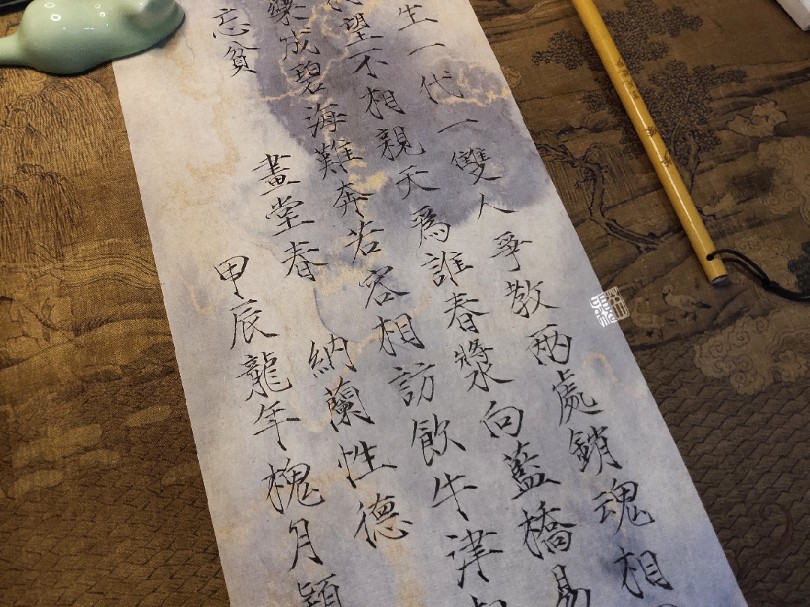 生一代一雙人爭教兩處銷魂相
望不相親天爲誰春漿向藍橋易
藥成碧海難奔若容相訪飲牛津
忘貧 畫堂春 納蘭性德
甲辰龍年槐月穎